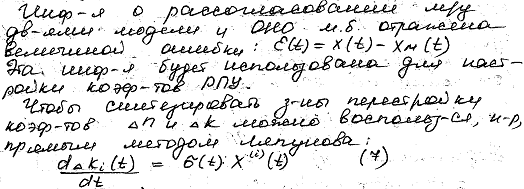 Инф-я о рассогласовании м/у
дв-ями модели и ОНО м.б. отражена
величиной ошибки: Ɛ(t) = X(t) - Xм(t)
Эта инф-я будет использована для наст-
ройки коэф-тов РПУ.
Чтобы синтезировать з-ны перестройки
коэф-тов Δn и Δk можно воспольз-ся, н-р,
прямым методом Ляпунова:
dΔki(t)/dt = σ(t) X⁽ⁱ⁾(t) (7)